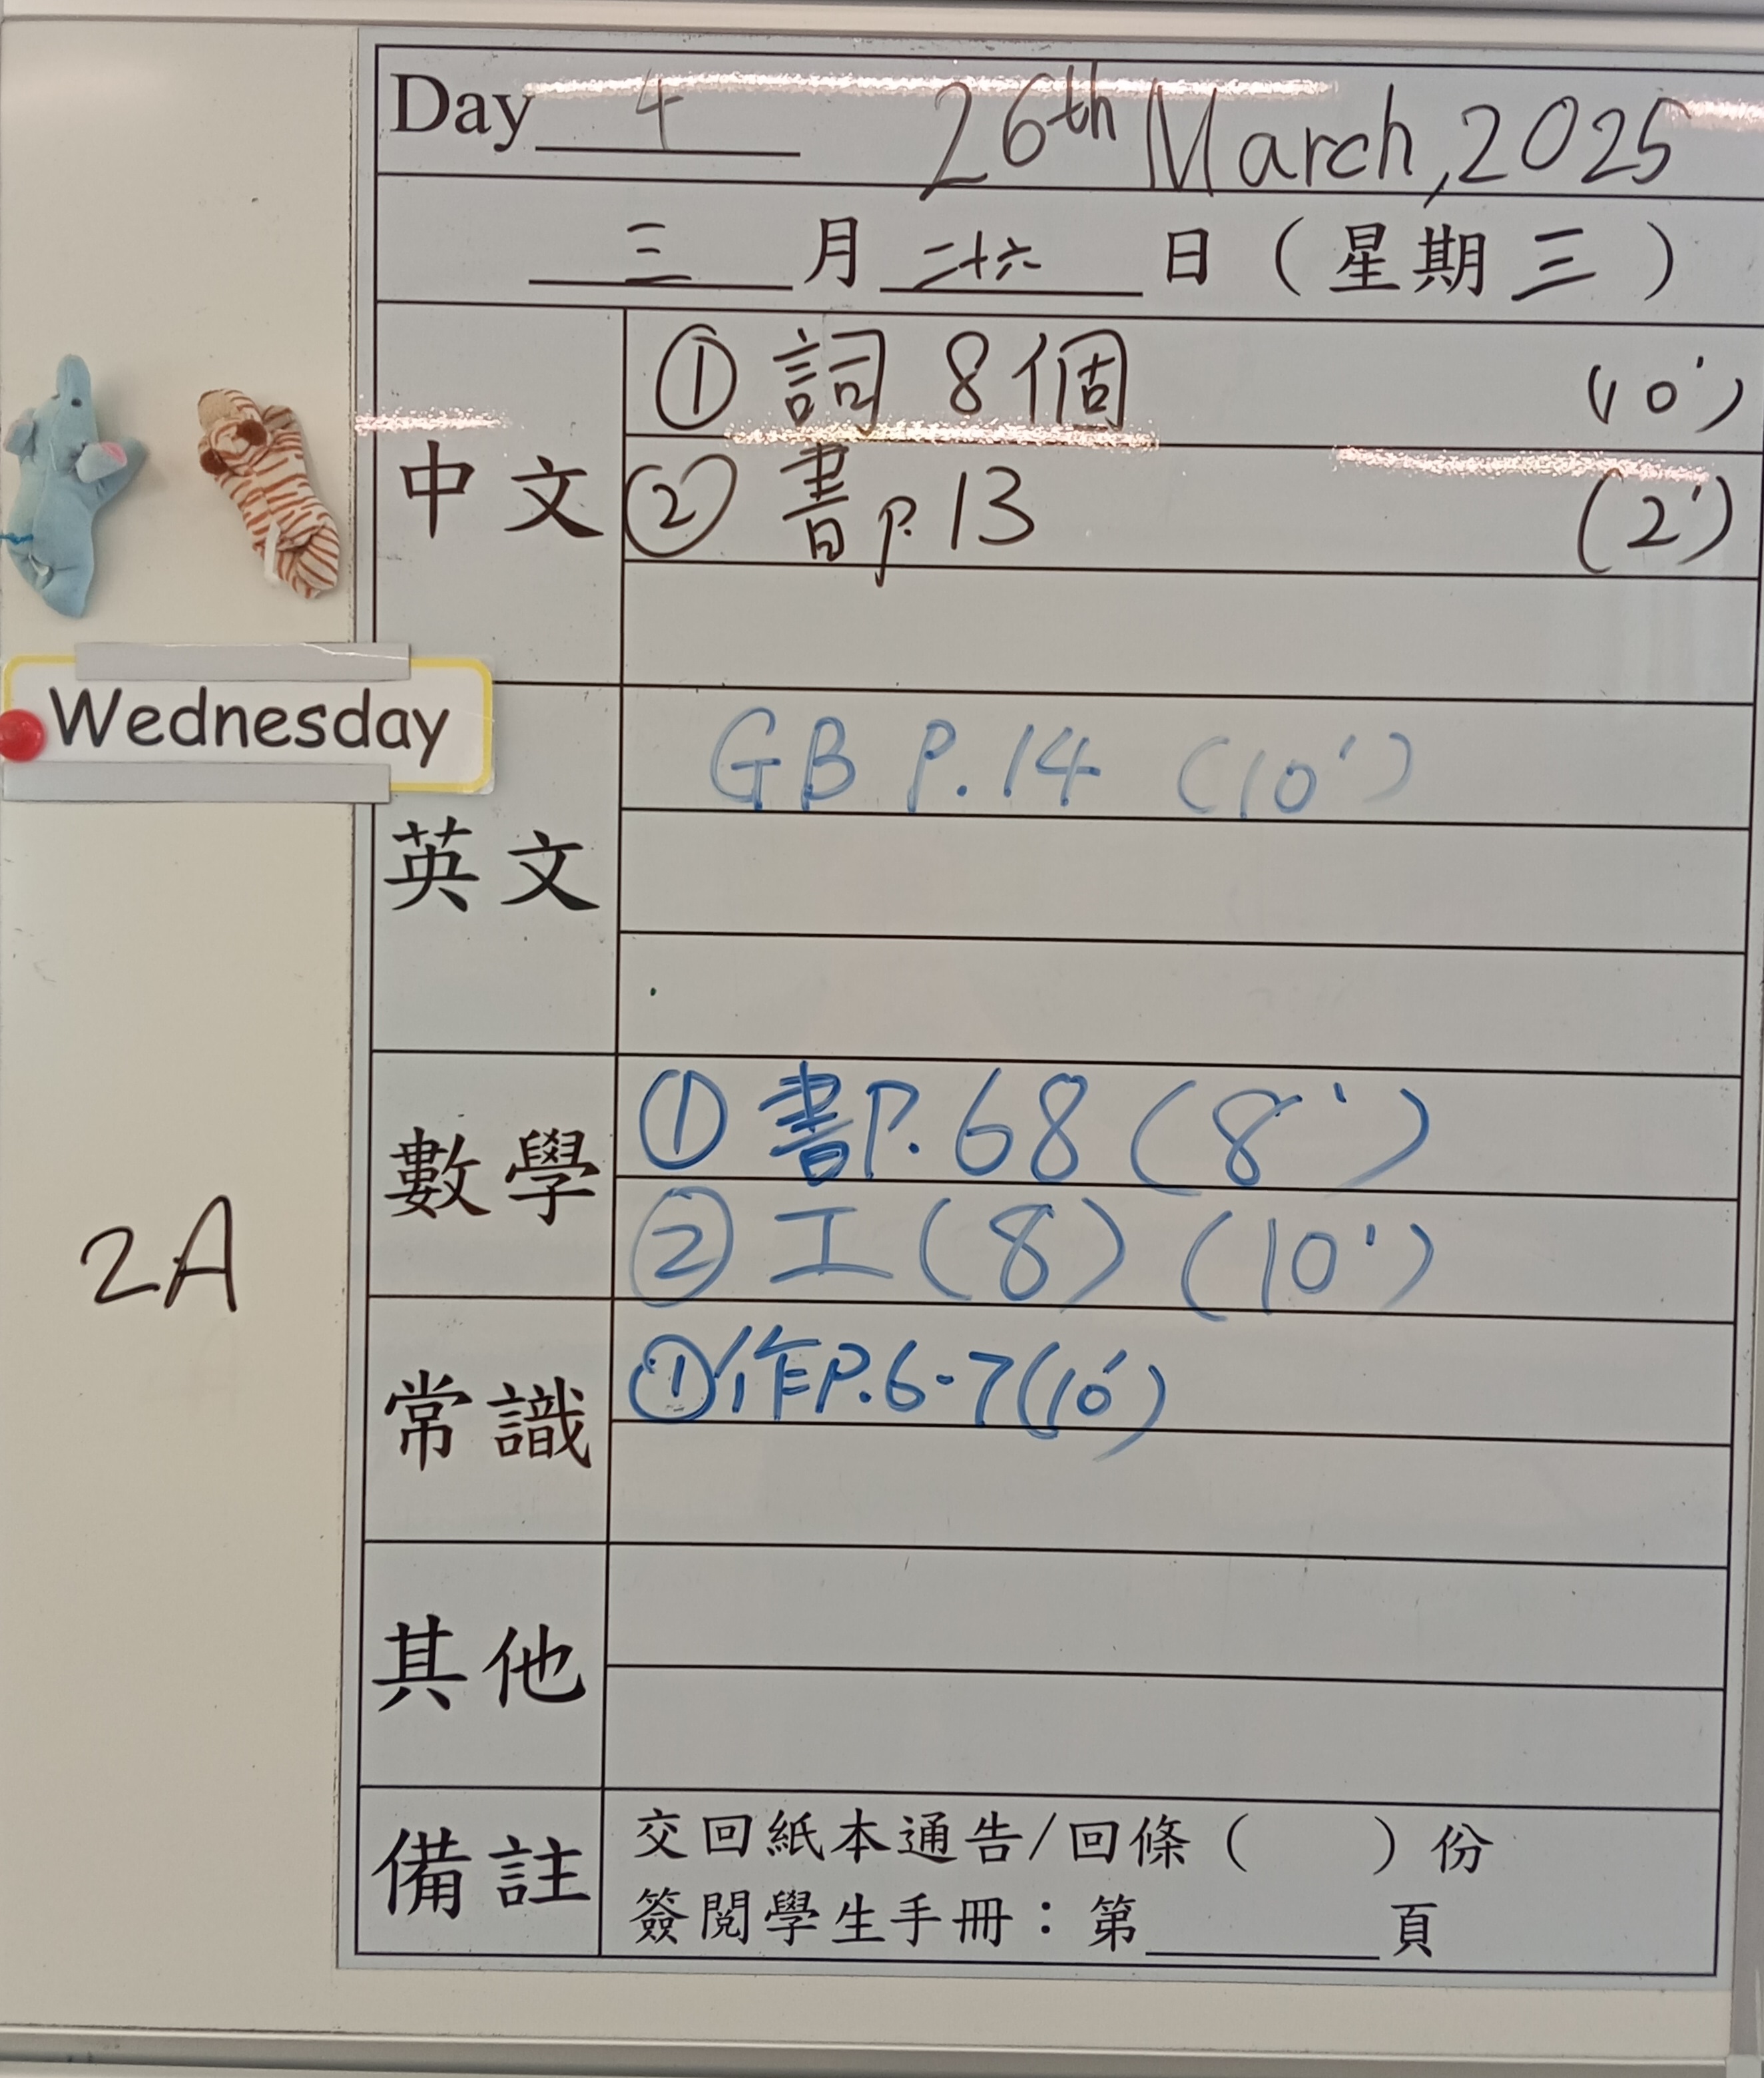 Day 4 26th March, 2025
三 月 二十六 日 ( 星期 三 )
中文
① 詞 8 個 (10')
② 書 p. 13 (2')
Wednesday
英文
GB P. 14 (10')
數學
① 書 P. 68 (8')
② 工 (8) (10')
2A
常識
① 作 P. 6-7 (10')
其他
備註
交回紙本通告/回條 ( ) 份
簽閱學生手冊：第______頁